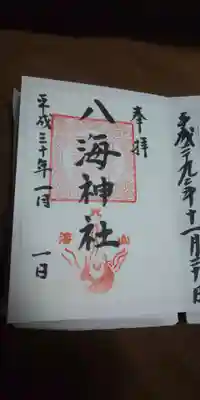 奉拝
八海神社
平成三十年一月一日
平成二九年十一月二十日